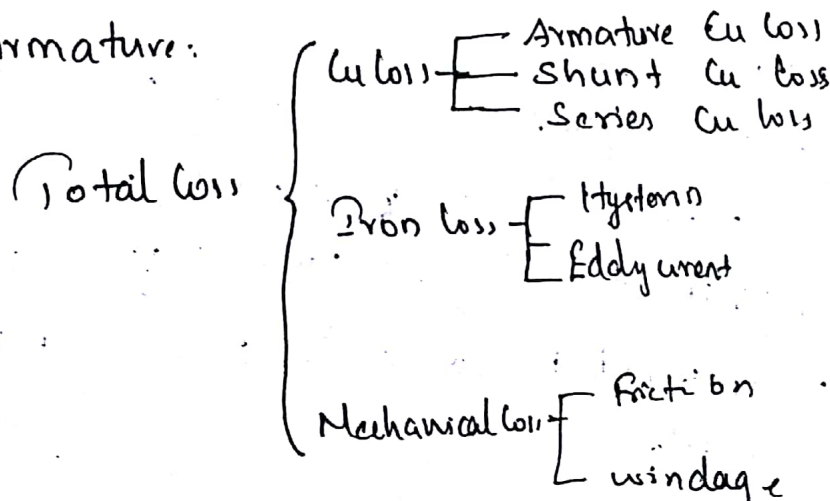 rmature.
Cu Loss
Armature Cu Loss
Shunt Cu Loss
Series Cu loss
Total Loss
Iron loss
Hysteris
Eddy current
Mechanical Loss
friction
windage